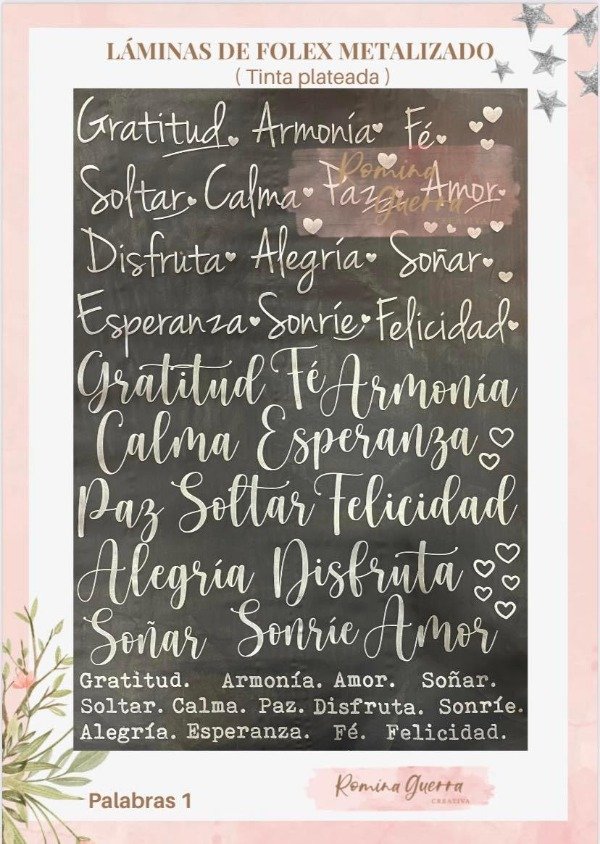 LÁMINAS DE FOLEX METALIZADO
( Tinta plateada )
Gratitud Armonía Fé
Soltar Calma Paz Amor
Romina
Guerra
Disfruta Alegría Soñar
Esperanza Sonríe Felicidad
Gratitud Fé Armonía
Calma Esperanza
Paz Soltar Felicidad
Alegría Disfruta
Soñar Sonríe Amor
Gratitud. Armonía. Amor. Soñar.
Soltar. Calma. Paz. Disfruta. Sonríe.
Alegría. Esperanza. Fé. Felicidad.
Palabras 1
Romina Guerra
CREATIVA